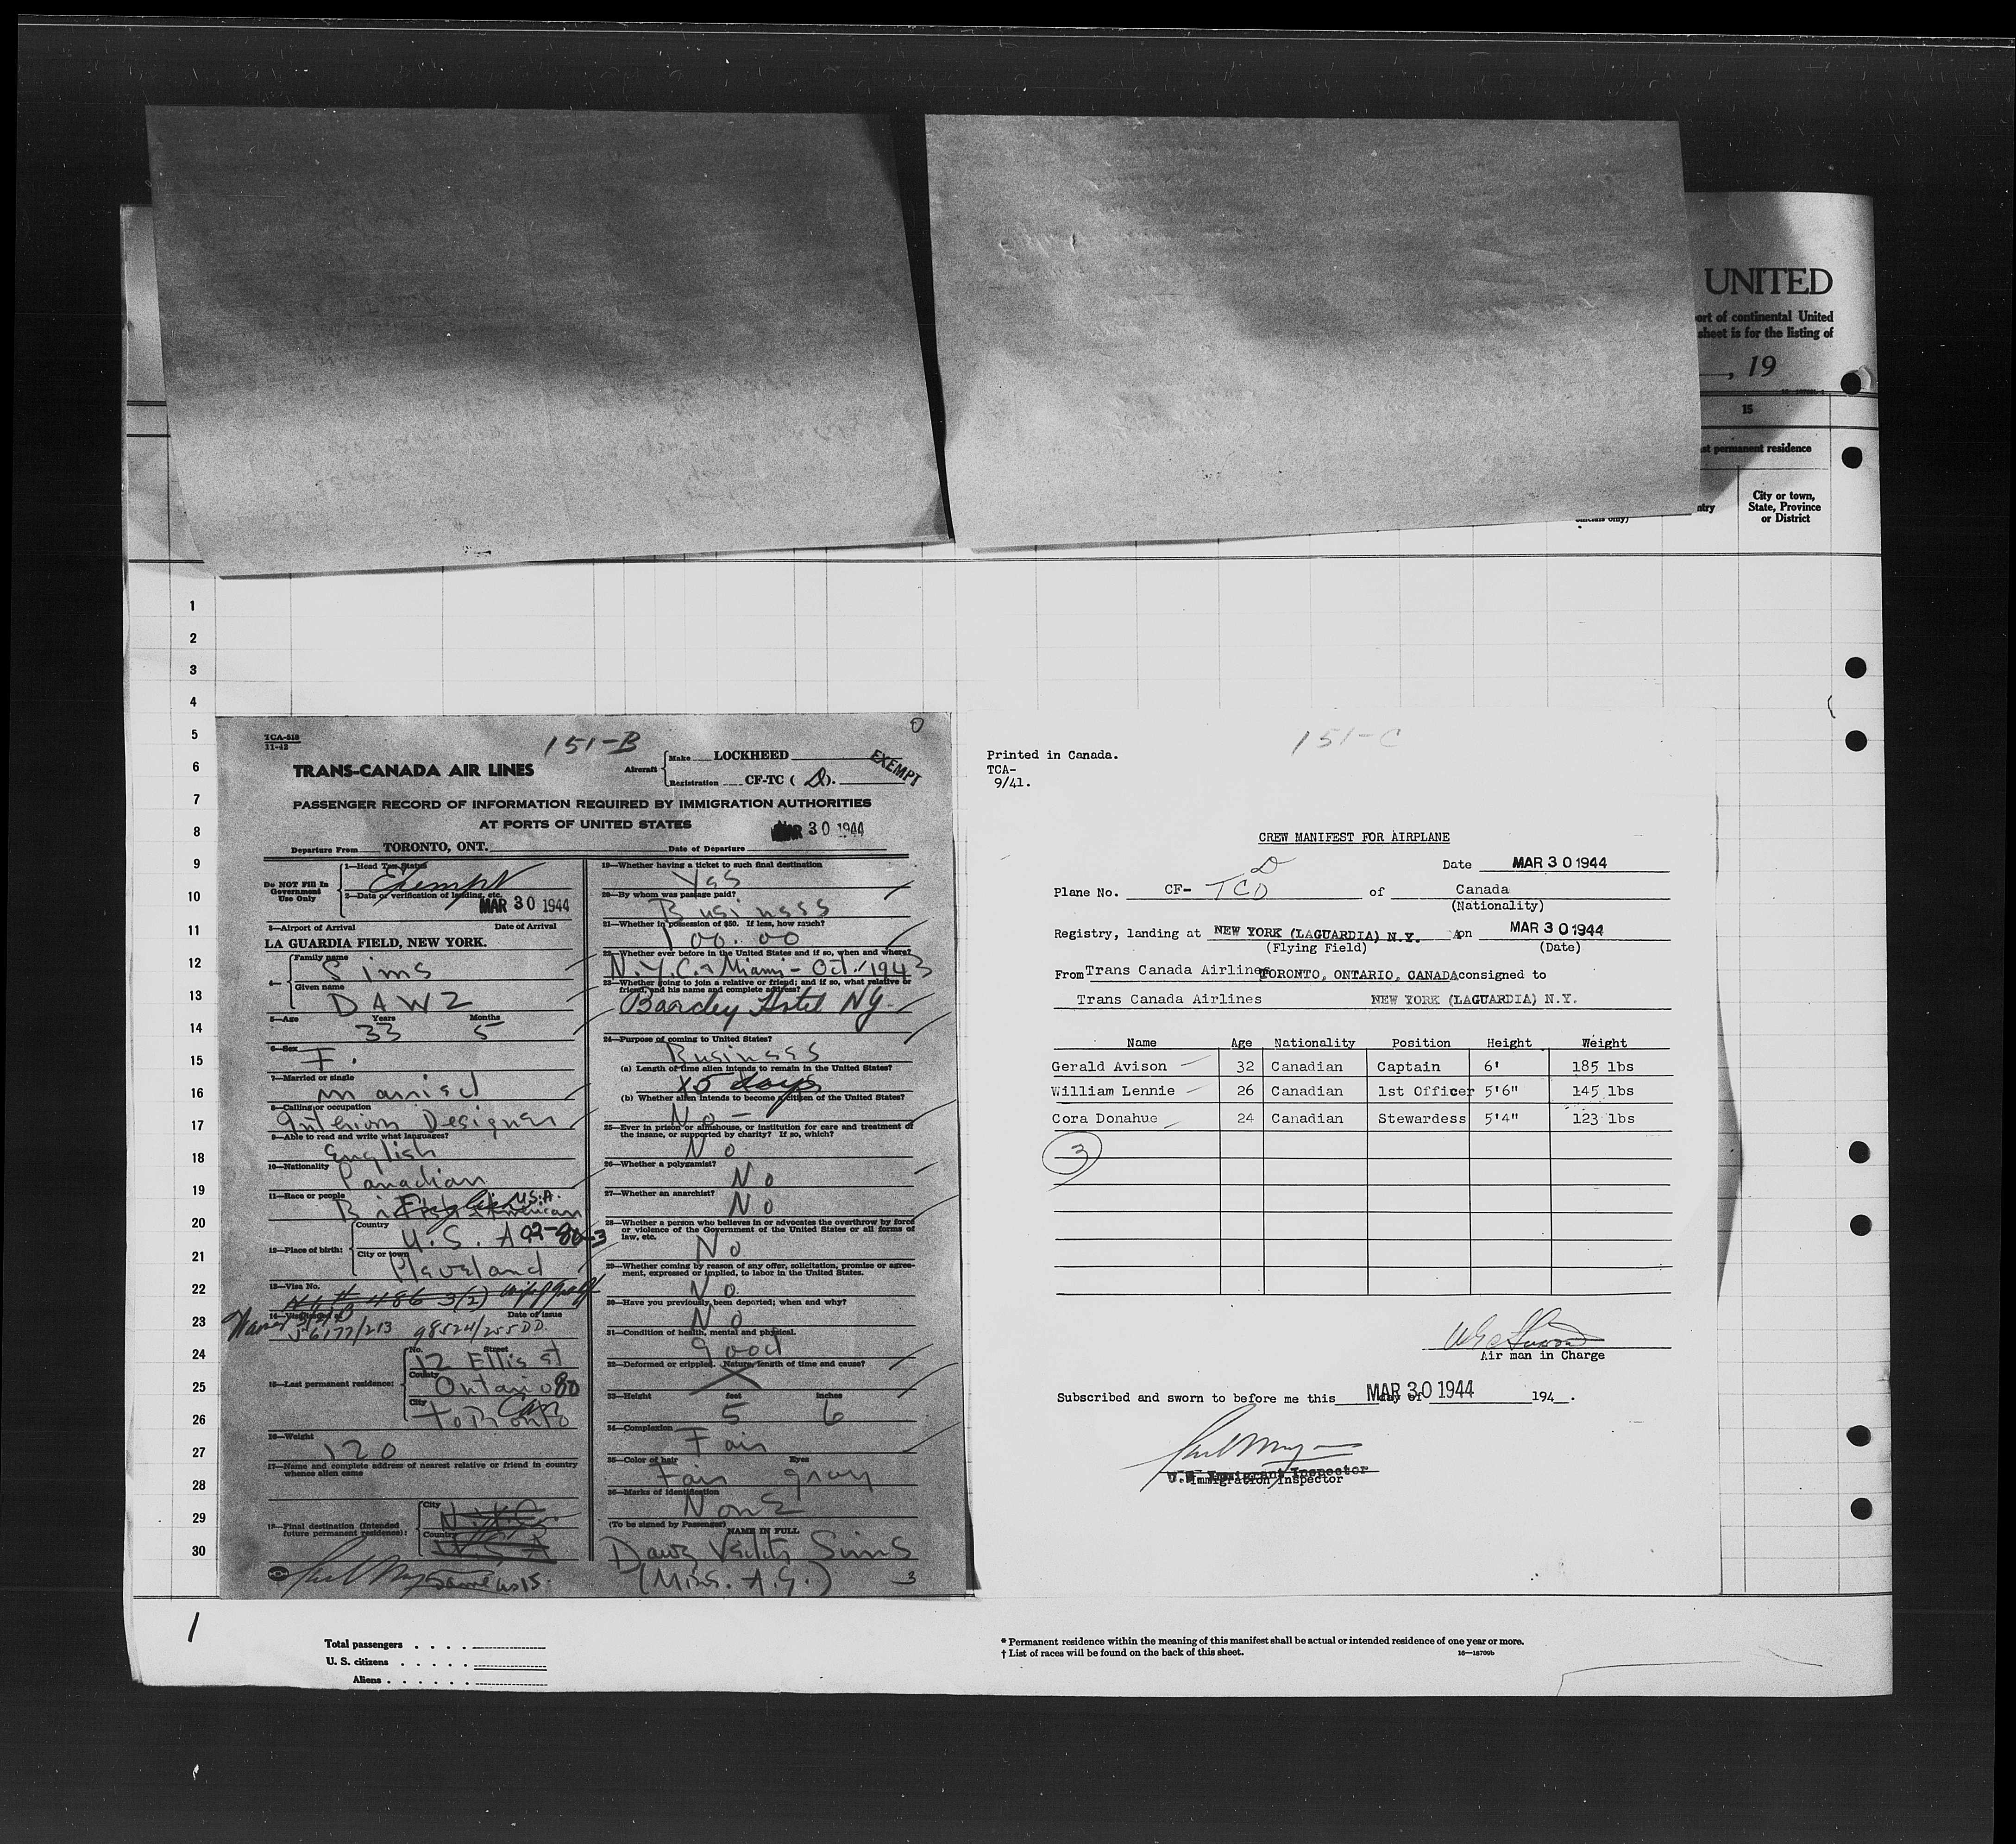 UNITED
ort of continental United
sheet is for the listing of
, 19
15
st permanent residence
ntry
City or town,
State, Province
or District
officials only)
1
2
3
4
5
6
7
8
9
10
11
12
13
14
15
16
17
18
19
20
21
22
23
24
25
26
27
28
29
30
TCA-518
11-42
151-B
TRANS-CANADA AIR LINES
Aircraft
Make LOCKHEED
Registration CF-TC ( D ).
EXEMPT
PASSENGER RECORD OF INFORMATION REQUIRED BY IMMIGRATION AUTHORITIES
AT PORTS OF UNITED STATES
MAR 30 1944
Departure From TORONTO, ONT. Date of Departure
Do NOT Fill In
Government
Use Only
1—Head Tax Status
Exempt
2—Data or verification of landing, etc.
MAR 30 1944
3—Airport of Arrival Date of Arrival
LA GUARDIA FIELD, NEW YORK.
4— Family name
Sims
Given name
DAWZ
5—Age Years Months
33 5
6—Sex
F.
7—Married or single
married
8—Calling or occupation
Interior Designer
9—Able to read and write what languages?
English
10—Nationality
Canadian
11—Race or people
English U.S.A.
American
12—Place of birth:
Country
U.S.A 02-80-3
City or town
Cleveland
13—Visa No.
486 3(2) wife of
Date of issue
56177/213 98524/255 DD
15—Last permanent residence:
No. Street
12 Ellis st
County
Ontario 80
City
Toronto Can
16—Weight
120
17—Name and complete address of nearest relative or friend in country
whence alien came
18—Final destination (Intended
future permanent residence):
City
Country
Same as 15.
19—Whether having a ticket to such final destination
Yes
20—By whom was passage paid?
Business
21—Whether in possession of $50. If less, how much?
100.00
22—Whether ever before in the United States and if so, when and where?
N.Y.C. & Miami - Oct. 1943
23—Whether going to join a relative or friend; and if so, what relative or
friend, and his name and complete address?
Barcley Hotel NY.
24—Purpose of coming to United States?
Business
(a) Length of time alien intends to remain in the United States?
15 days
(b) Whether alien intends to become a citizen of the United States?
No -
25—Ever in prison or almshouse, or institution for care and treatment of
the insane, or supported by charity? If so, which?
No
26—Whether a polygamist?
No
27—Whether an anarchist?
No
28—Whether a person who believes in or advocates the overthrow by force
or violence of the Government of the United States or all forms of
law, etc.
No
29—Whether coming by reason of any offer, solicitation, promise or agree-
ment, expressed or implied, to labor in the United States.
No.
30—Have you previously been deported; when and why?
No
31—Condition of health, mental and physical.
Good
32—Deformed or crippled. Nature, length of time and cause?
X
33—Height feet inches
5 6
34—Complexion
Fair
35—Color of hair Eyes
Fair gray
36—Marks of identification
None
(To be signed by Passenger) NAME IN FULL
Sims
3
151-C
Printed in Canada.
TCA-
9/41.
CREW MANIFEST FOR AIRPLANE
Date MAR 30 1944
D
Plane No. CF- TCD of Canada
(Nationality)
Registry, landing at NEW YORK (LAGUARDIA) N.Y. on MAR 30 1944
(Flying Field) (Date)
From Trans Canada Airlines TORONTO, ONTARIO, CANADA consigned to
Trans Canada Airlines NEW YORK (LAGUARDIA) N.Y.
Name Age Nationality Position Height Weight
Gerald Avison 32 Canadian Captain 6' 185 lbs
William Lennie 26 Canadian 1st Officer 5'6" 145 lbs
Cora Donahue 24 Canadian Stewardess 5'4" 123 lbs
3
Air man in Charge
Subscribed and sworn to before me this day of MAR 30 1944 194 .
U.S. Immigrant Inspector
Immigration Inspector
1
Total passengers . . . .
U. S. citizens . . . . .
Aliens . . . . . .
* Permanent residence within the meaning of this manifest shall be actual or intended residence of one year or more.
† List of races will be found on the back of this sheet.
16—18709b